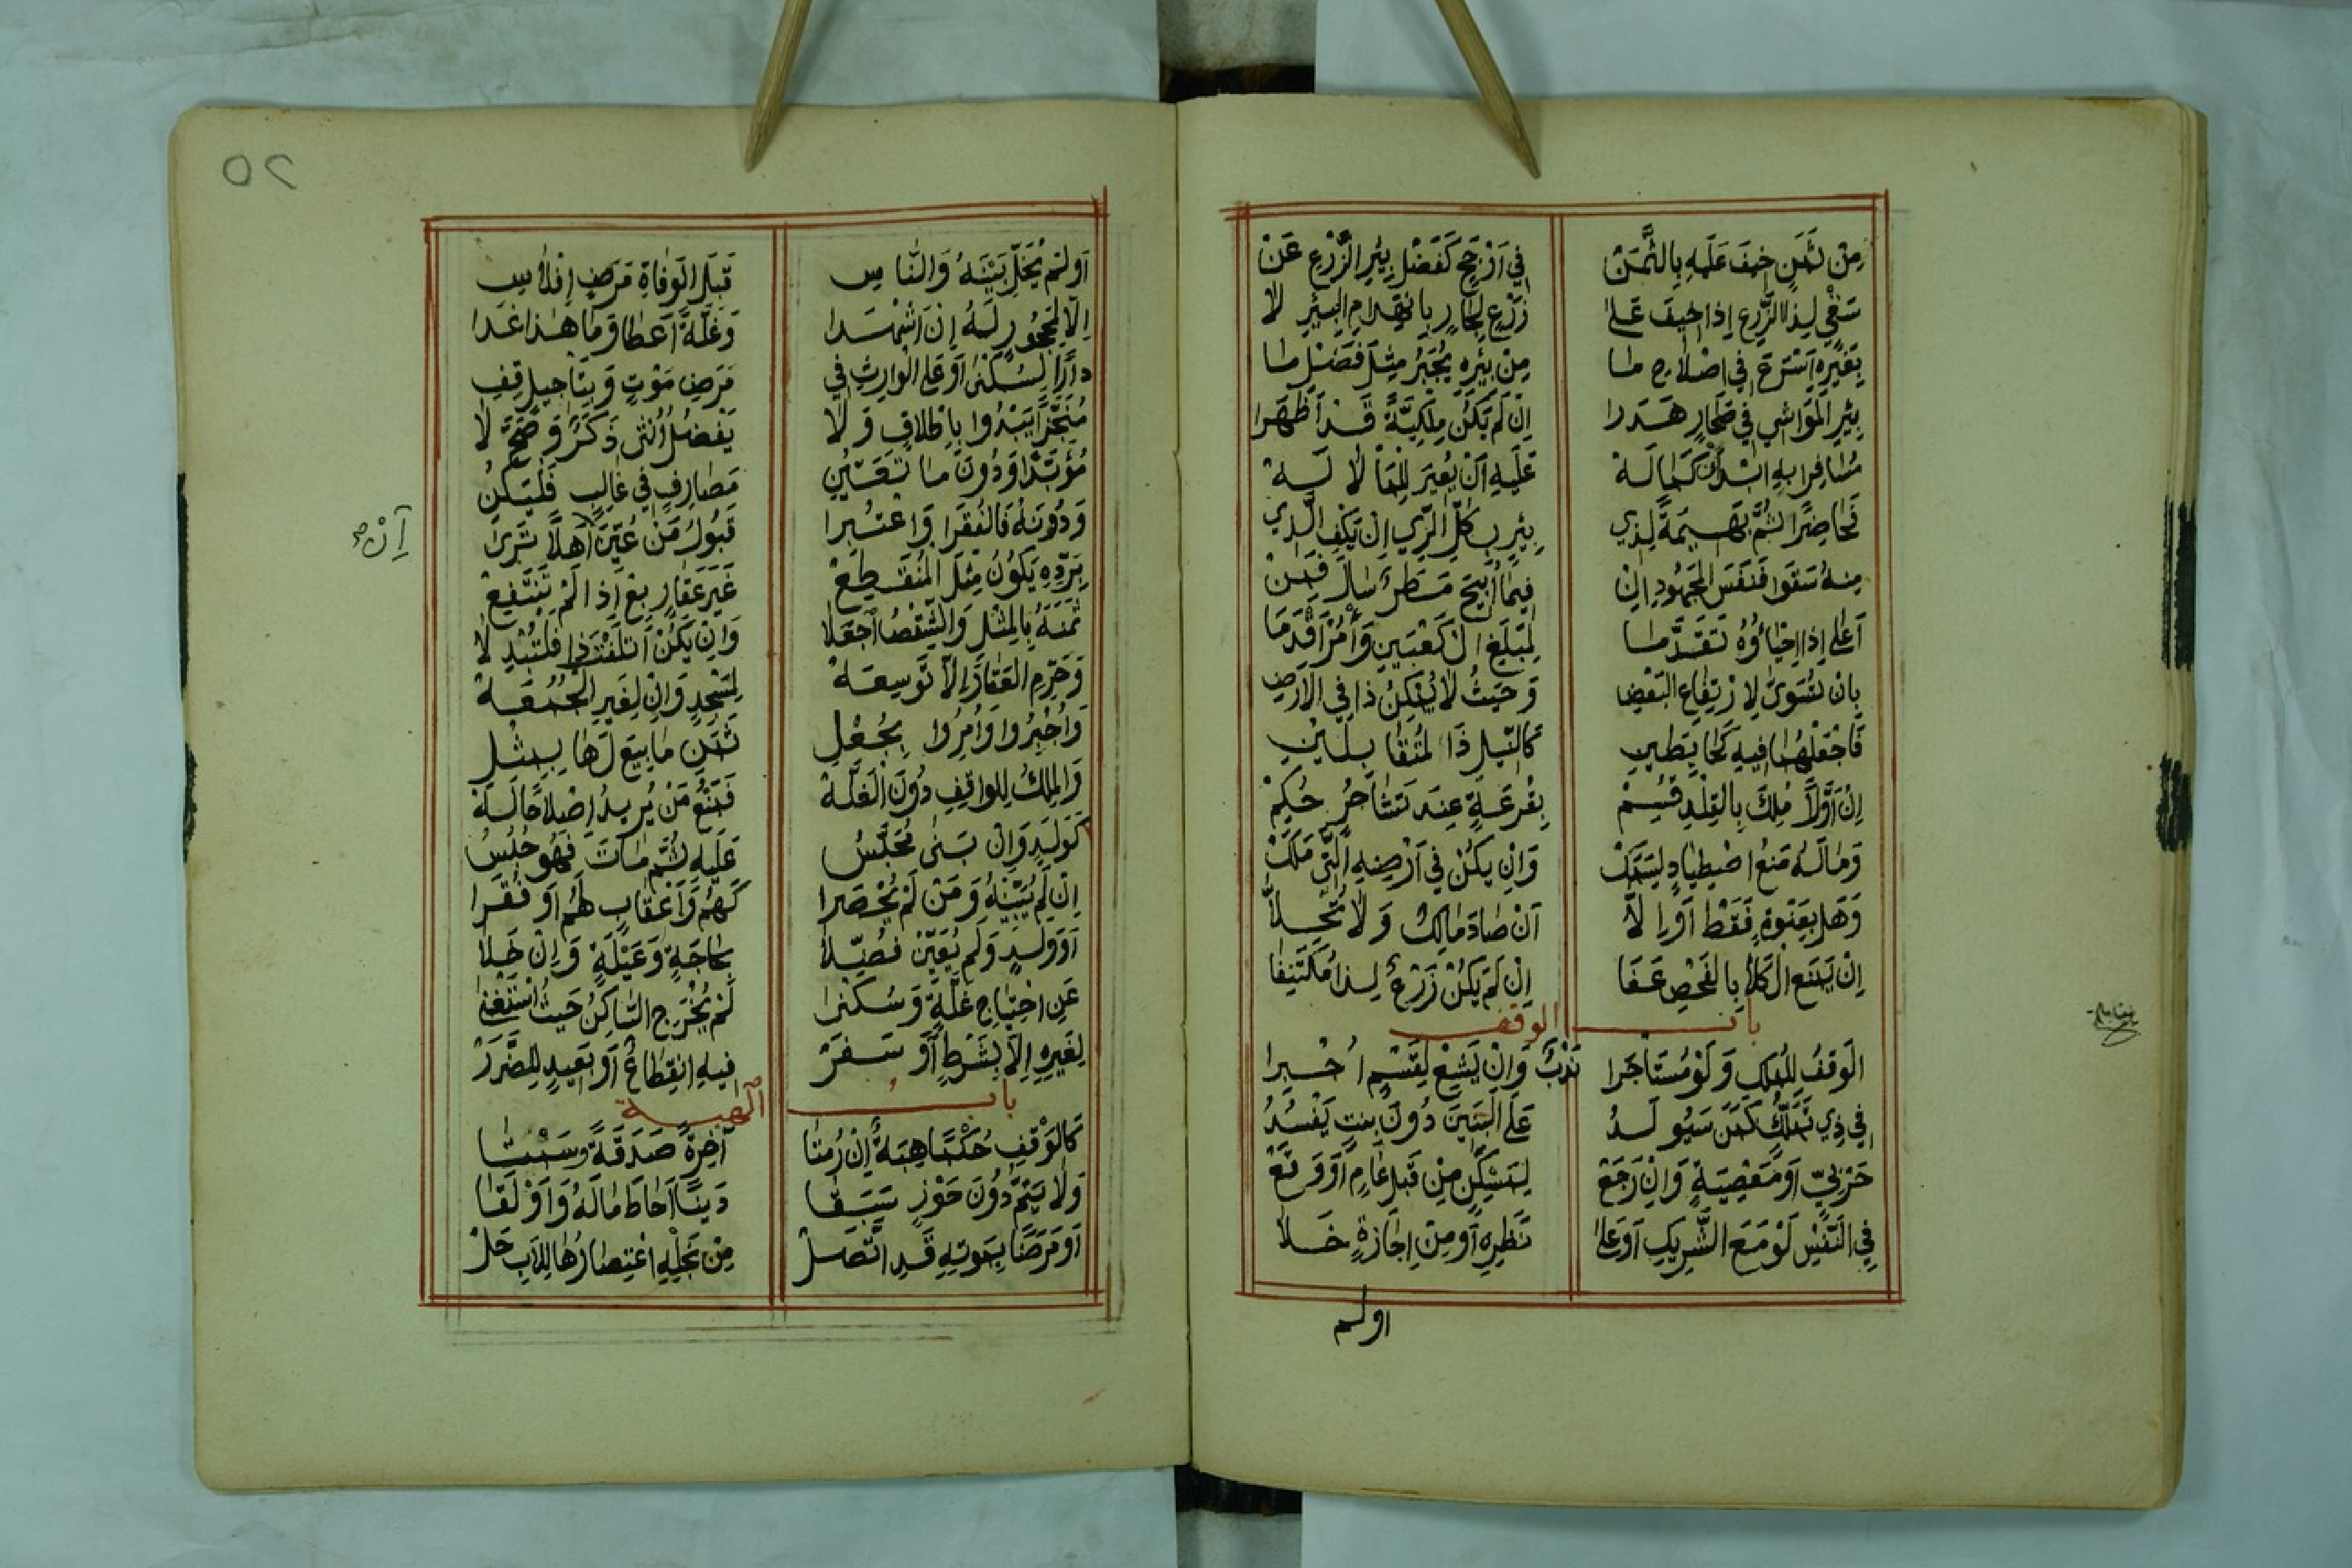 مِنْ ثَمَنٍ خِيفَ عَلَيْهِ بِالثَّمَنْ فِي أَرْجَحٍ كَفَضْلِ بِئْرِ الزَّرْعِ عَنْ
سَقْيٍ لِذَا الزَّرْعِ إِذَا خِيفَ عَلَى زَرْعٍ لِجَارٍ بِانْهِدَامِ الْبِئْرِ لَا
بِغَيْرِهِ اسْتَرَعَ فِي اصْلَاحِ مَا مِنْ بِئْرِهِ يُجْبَرُ مِثْلَ فَضْلِ مَا
بِئْرِ الْمَوَاشِي فِي صَحَارٍ هَدَرَا إِنْ لَمْ يَكُنْ مِلْكِيَّةً قَدْ أَظْهَرَا
مُسَافِرًا بِهِ ابْدَأَنْ كَمَا لَهْ عَلَيْهِ أَنْ يُعِيرَ لِلْمَا لَا لَهْ
فَحَاضِرًا ثُمَّ بَهِيمَةً لِذِي بِئْرٍ بِكُلِّ الرِّيِّ إِنْ يَكْفِ الَّذِي
مِنْهُ سَقَوْا فَنَفْسَ الْمَجْهُودِ إِنْ فِيمَا أُبِيحَ مَطَرٌ سَالَ فَمِنْ
أَعْلَى إِذَا إِحْيَاؤُهُ تَقَدَّمَا لِمَبْلَغِ الْكَعْبَيْنِ وَأْمُرْ أَقْدَمَا
بِأَنْ تُسَوَّى لِارْتِفَاعِ الْبَعْضِ وَحَيْثُ لَا يُمْكِنُ ذَا فِي الْأَرْضِ
فَاجْعَلْهُمَا فِيهِ كَحَايِطَيْنِ كَالنِّيلِ ذَا لْمُتَقَابِلَيْنِ
إِنْ أَوَّلًا مُلِكَ بِالْقِلْدِ قُسِمْ بِقُرْعَةٍ عِنْدَ تَشَاحُرٍ حُكِمْ
وَمَا لَهُ مَنْعُ اصْطِيَادٍ لِسَمَكْ وَإِنْ يَكُنْ فِي أَرْضِهِ الَّتِي مَلَكْ
وَهَلْ بِعَنْوَةٍ فَقَطْ أَوْ إِلَّا أَنْ صَادَ مَالِكٌ وَلَا تُحِلَّا
إِنْ يَمْنَعِ الْكَلَا بِالْفَحْصِ عَفَا إِنْ لَمْ يَكُنْ زَرْعٌ لِذَا مُكْتَنِفَا
بَابُ الوقف
الْوَقْفُ لِلْمُمْلَكِ وَلَوْ مُسْتَأْجَرَا نَدْبٌ وَإِنْ يَشِعْ لِقَسْمٍ أُجْبِرَا
فِي ذِي تَمَلُّكٍ كَمَنْ سَيُولَدُ عَلَى الْبَنِينَ دُونَ بِنْتٍ يَفْسُدُ
حَرْبِيٍّ أَوْ مَعْصِيَةٍ وَإِنْ رَجَعْ لِمَسْكَنٍ مِنْ قَبْلِ عَامٍ أَوْ وَقَعْ
فِي النَّفْسِ لَوْ مَعَ الشَّرِيكِ أَوْ عَلَى نَظَرِهِ أَوْ مِنْ إِجَازَةٍ خَلَا
اولم
٥٢
أَوْ لَمْ يُخَلِّ بَيْنَهُ وَالنَّاسِ قَبْلَ الْوَفَاةِ مَرَضٍ إِفْلَاسِ
إِلَّا لِمَحْجُورٍ لَهُ إِنْ أَشْهَدَا وَغَلَّةً أَعْطَا وَمَا هَذَا غَدَا
دَارًا لِسُكْنَى أَوْ عَلَى الْوَارِثِ فِي مَرَضِ مَوْتٍ وَبِتَأْجِيلٍ قِفِ
مُنَجَّزًا يَبْدُوا بِإِطْلَاقٍ وَلَا يَفْضُلُ أُنْثَى ذَكَرٌ وَصَحَّ لَا
مُؤَبَّدًا وَدُونَ مَا تَعَيُّنِ مَصَارِفٍ فِي غَالِبٍ فَلْيَكُنْ
وَدُونَهُ فَالْفُقَرَا وَاعْتُبِرَا قَبُولُ مَنْ عُيِّنَ أَهْلًا تَرَى
بِرَدِّهِ يَكُونُ مِثْلَ الْمُنْقَطِعْ غَيْرَ عَقَارٍ بِعْ إِذَا لَمْ تَنْتَفِعْ
ثَمَنَهُ بِالْمِثْلِ وَالشِّقْصُ اجْعَلَا وَإِنْ يَكُنْ أَتْلَفْتَ ذَا فَلْتُبْدِلَا
وَحَرِّمِ الْعَقَارَ إِلَّا تَوْسِعَهْ لِمَسْجِدٍ وَإِنْ لِغَيْرِ الْجُمُعَهْ
وَأُجْبِرُوا وَأُمِرُوا بِجُعْلِ ثَمَنِ مَا بِيعَ لَهَا بِمِثْلِ
وَالْمِلْكُ لِلْوَاقِفِ دُونَ الْغَلَّهْ فَمَنْعُ مَنْ يُرِيدُ إِصْلَاحًا لَهْ
كَوَلَدٍ وَإِنْ بَنَى مُحَبَّسُ عَلَيْهِ ثُمَّ مَاتَ فَهُوَ حُبُسُ
إِنْ لَمْ يُبَيِّنْهُ وَمَنْ لَمْ يُحْصَرَا كَهُمْ وَأَعْقَابٍ لَهُمْ أَوْ فُقَرَا
أَوْ وَلَدٍ وَلَمْ يُعَيِّنْ فُضِّلَا بِحَاجَةٍ وَعَيْلَةٍ وَإِنْ خَلَا
عَنِ احْتِيَاجِ غَلَّةٍ وَسُكْنَى لَمْ يُخْرَجِ السَّاكِنُ حَيْثُ اسْتَغْنَى
لِغَيْرِهِ إِلَّا بِشَرْطٍ أَوْ سَفَرْ فِيهِ انْقِطَاعٌ أَوْ بَعِيدٍ لِلضَّرَرْ
بَابُ الهبة
كَالْوَقْفِ حُكْمًا هِبَةٌ إِنْ رُمْتَا آخِرَةً صَدَقَةً وَسَمْتَا
وَلَا يَتِمُّ دُونَ حَوْزٍ سَبَقَا دَيْنًا أَحَاطَ مَالَهُ وَأَوْ لَقَا
أَوْ مَرَضًا بِمَوْتِهِ قَدِ اتَّصَلْ مِنْ نَجْلِهِ اعْتِصَارُهَا لِلْأَبِ حَلْ